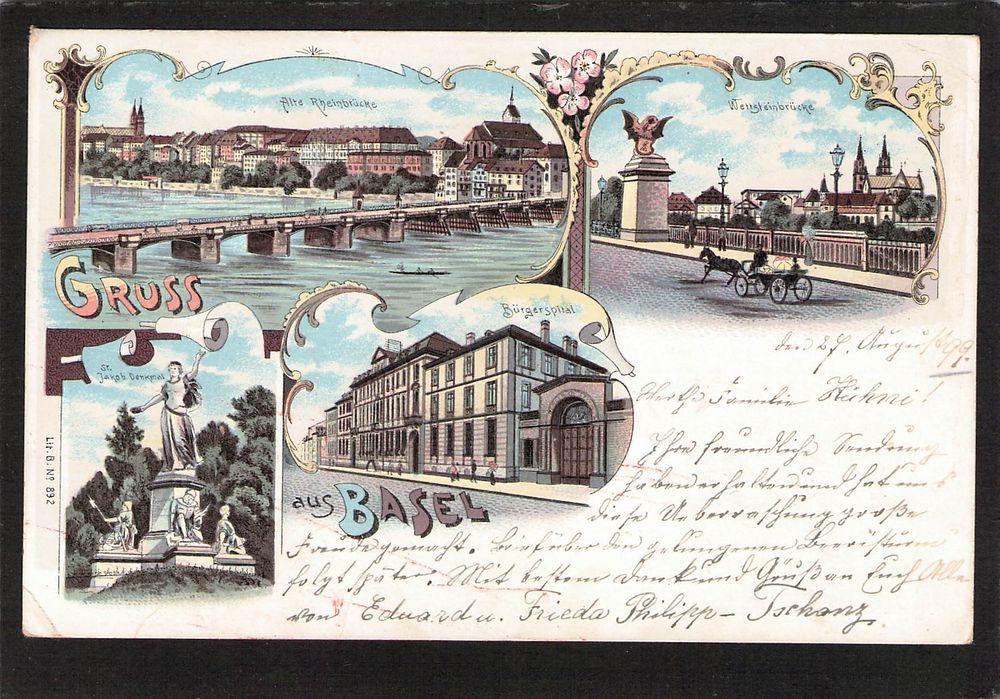 Alte Rheinbrücke
Wettsteinbrücke
GRUSS
St.
Jakob Denkmal
Bürgerspital
aus BASEL
Lit. B. Nº 892
den 27. August 99.
Werthe Familie Kühni!
Ihre freundliche Sendung
haben erhalten und hat uns
diese Ueberraschung große
Freude gemacht. Brief über den gelungenen
folgt später. Mit bestem Dank und Gruß an Euch Alle
von Eduard u. Frieda Philipp-Tschanz.